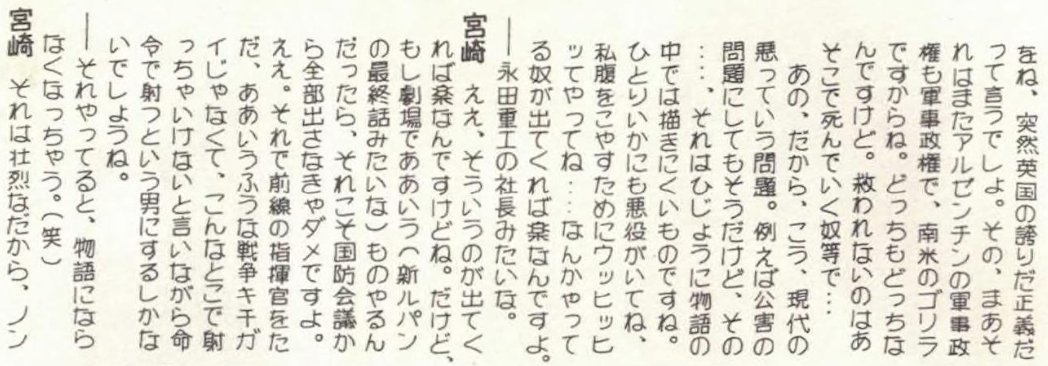 をね、突然英国の誇りだ正義だ
って言うでしょ。その、まあそ
れはまたアルゼンチンの軍事政
権も軍事政権で、南米のゴリラ
ですからね。どっちもどっちな
んですけど。救われないのはあ
そこで死んでいく奴等で…
あの、だから、こう、現代の
悪っていう問題。例えば公害の
問題にしてもそうだけど、その
…、それはひじょうに物語の
中では描きにくいものですね。
ひとりいかにも悪役がいてね、
私腹をこやすためにウッヒッヒ
ッてやってね……なんかやって
る奴が出てくれば楽なんですよ。
――永田重工の社長みたいな。
宮崎 ええ、そういうのが出てく
れば楽なんですけどね。だけど、
もし劇場でああいう（新ルパン
の最終話みたいな）ものやるん
だったら、それこそ国防会議か
ら全部出さなきゃダメですよ。
ええ。それで前線の指揮官をた
だ、ああいうふうな戦争キチガ
イじゃなくて、こんなとこで射
っちゃいけないと言いながら命
令で射つという男にするしかな
いでしょうね。
――それやってると、物語になら
なくなっちゃう。（笑）
宮崎 それは壮烈なだから、ノン